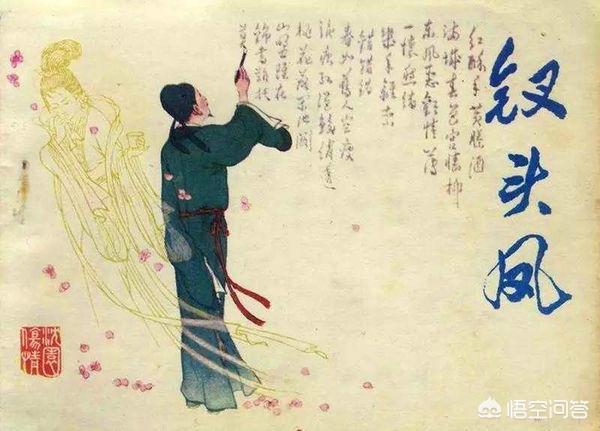 钗头凤
红酥手黄縢酒
满城春色宫墙柳
东风恶歡情薄
一懷愁绪
幾年離索
错错错
春如舊人空瘦
泪痕红浥鲛绡透
桃花落闲池阁
山盟雖在
锦書難托
莫
沈園
傷情
悟空问答